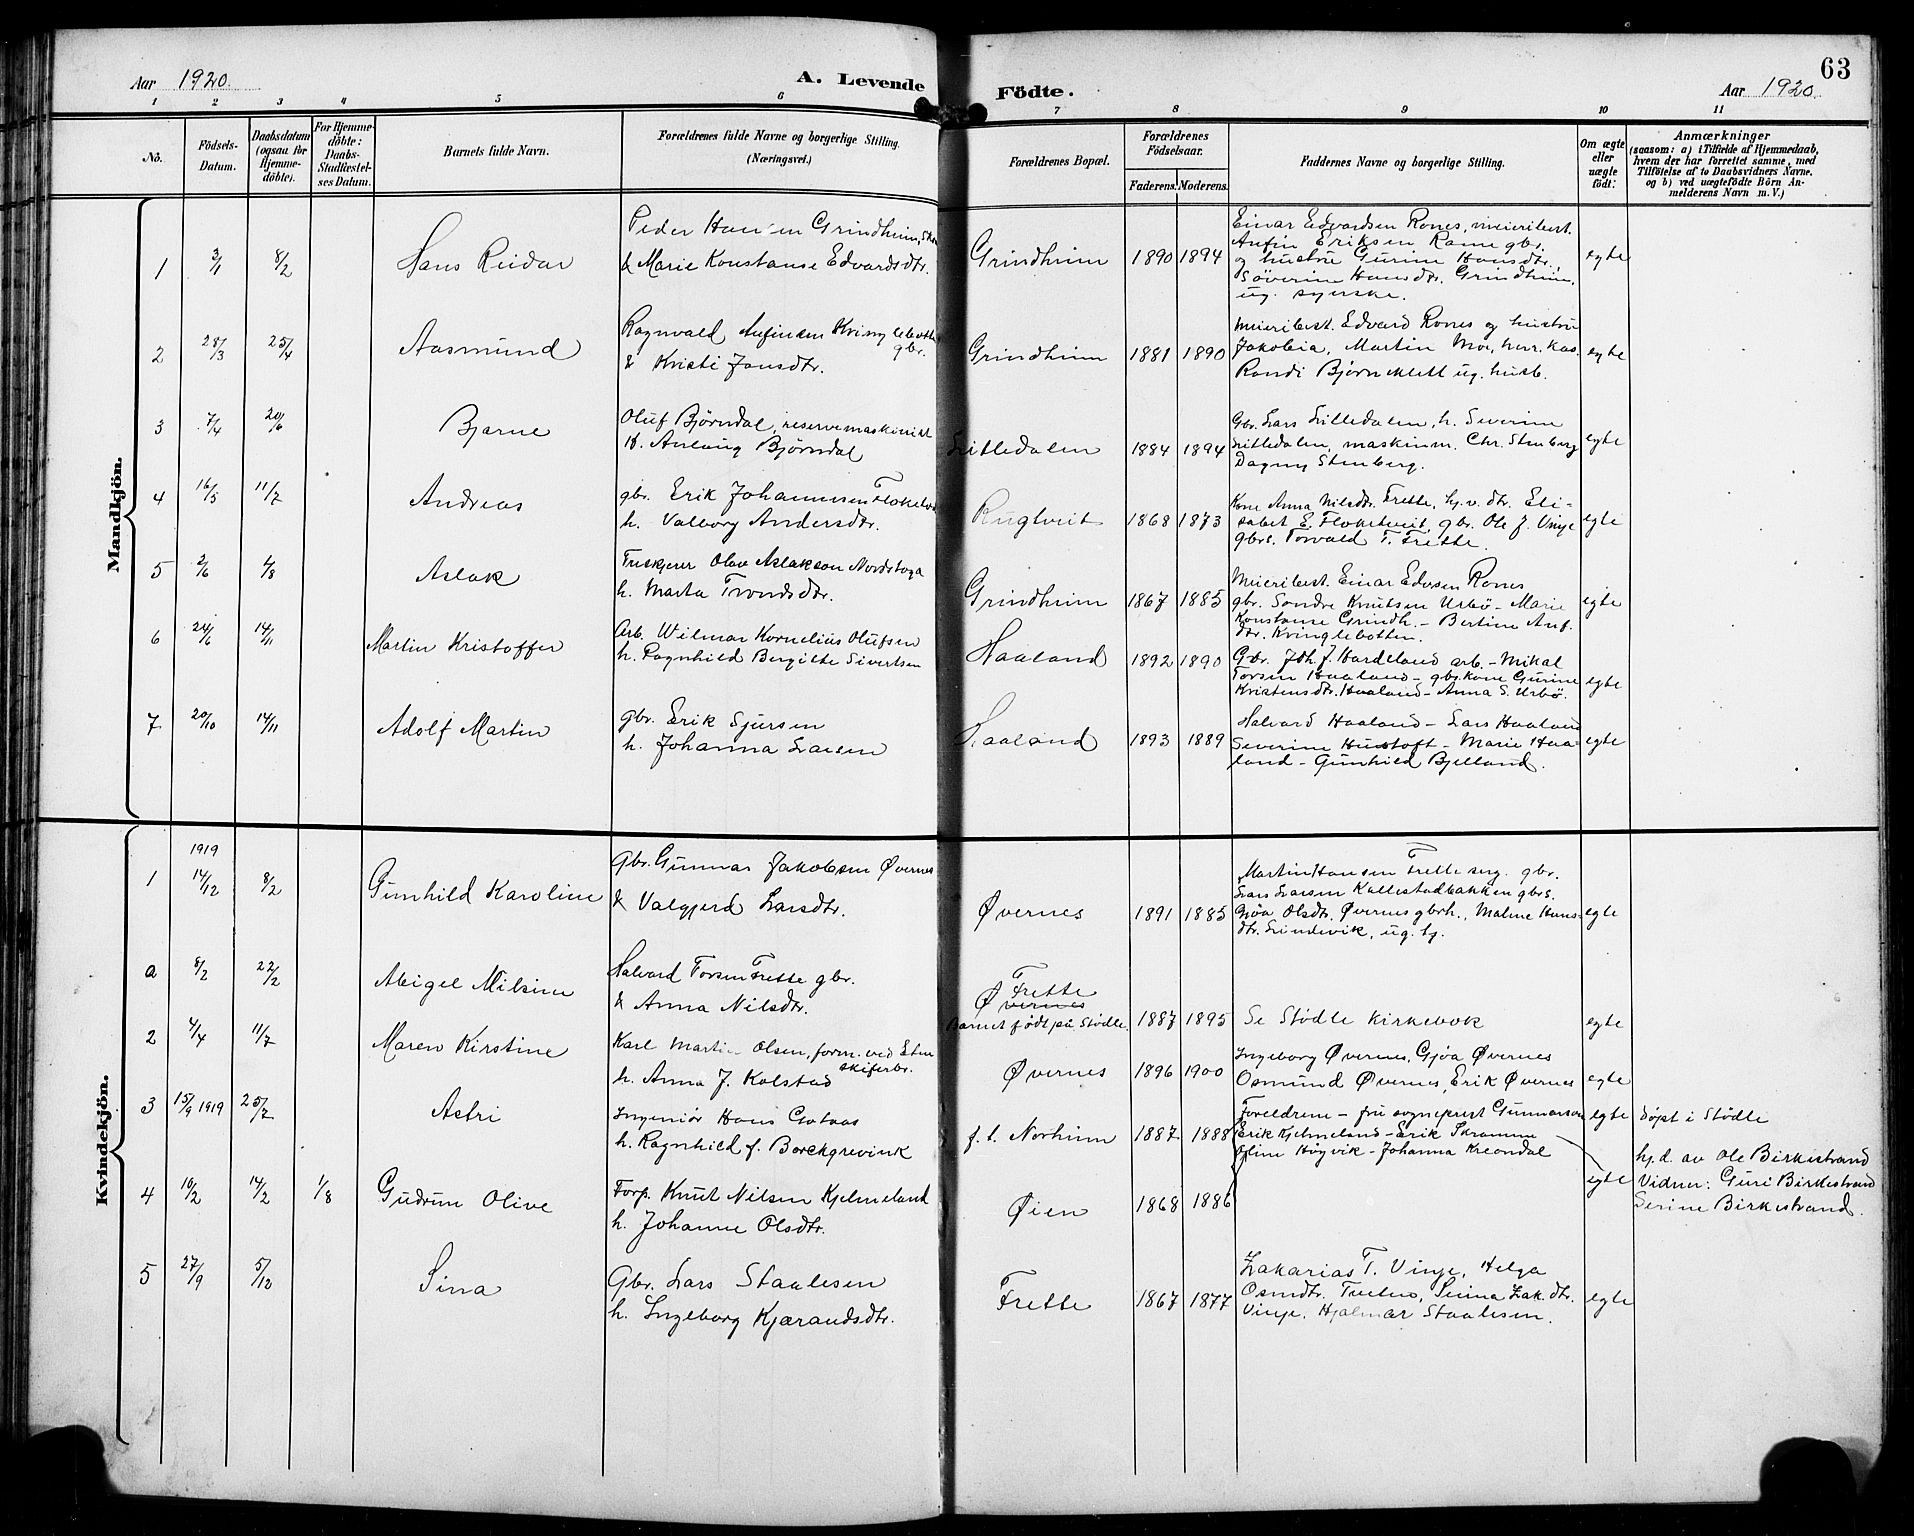 63
Aar 1920.
A. Levende
Födte.
Aar 1920.
1 2 3 4 5 6 7 8 9 10 11
No.
Födsels-
Datum.
Daabsdatum
(ogsaa for
Hjemme-
döbte).
For Hjemme-
döbte:
Daabs-
Stadfæstel-
ses Datum.
Barnets fulde Navn.
Forældrenes fulde Navne og borgerlige Stilling.
(Næringsvei.)
Forældrenes Bopæl.
Forældrenes
Födselsaar.
Faderens. Moderens.
Faddernes Navne og borgerlige Stilling.
Om ægte
eller
uægte
födt.
Anmærkninger
(saasom: a) i Tilfælde af Hjemmedaab,
hvem der har forrettet samme, med
Tilföielse af to Daabsvidners Navne,
og b) ved uægtefödte Börn An-
melderens Navn m. V.)
Mandkjön.
1 3/1 8/2 Hans Reidar
Peder Hansen Grindheim,
& Marie Konstanse Edvardsdtr.
Grindheim 1890 1894
Einar Edvardsen Rones, meieribest.
Anfin Eriksen Rame gbr.
og hustru Gurine Hansdtr.
Söverine Hansdtr. Grindheim,
ug. syerske.
egte
2 28/3 25/4 Aasmund
Ragnvald Anfinsen Kvinglebotten
gbr.
& Kristi Jansdtr.
Grindheim 1881 1890
Meieribest. Edvard Rones og hustru
Jakobia, Martin Moe, hvr. kas.
Randi Bjørnklett ug. husb.
egte
3 7/4 20/6 Bjarne
Oluf Bjørndal, reservemaskinist
H. Anlaug Bjørndal
Litledalen 1884 1894
Gbr. Lars Litledalen, h. Severine
Litledalen, maskinm. Chr. Stenberg
Dagny Stenberg.
egte
4 16/5 11/7 Andreas
gbr. Erik Johannesen Floketveit
h. Valborg Andersdtr.
Rugtveit 1868 1873
Kone Anna Nilsdtr. Frette, hj.v. dtr. Eli-
sabet E. Floketveit, gbr. Ole J. Vinje
gbrs. Torvald T. Frette.
egte
5 2/6 1/8 Aslak
Friskjerer Olav Aslakson Nordstoga
h. Marta Trondsdtr.
Grindheim 1867 1885
Meieribest. Einar Edvsen Rones
gbr. Sondre Knutsen Urbö - Marie
Konstanse Grindh. - Bertine Anf.
dtr. Kvinglebotten.
egte
6 24/6 14/11 Martin Kristoffer
Arb. Wilmar Kornelius Olufsen
h. Ragnhild Bergitte Sivertsen
Haaland 1892 1890
Gbr. Joh. J. Hardeland arb. - Mikal
Torsen Haaland - gbr.kone Gurine
Kristensdtr. Haaland - Anna S. Urbö.
egte
7 20/10 14/11 Adolf Martin
gbr. Erik Sjursen
h. Johanna Larsen
Haaland 1893 1889
Halvard Haaland - Lars Haaland
Severine Hustoft - Marie Haa-
land - Gunhild Bjelland.
egte
Kvindekjön.
1919
1 14/12 8/2 Gunhild Karoline
Gbr. Gunnar Jakobsen Øvernes
& Valgjerd Larsdtr.
Øvernes 1891 1885
Martin Hansen Frette ung. gbr.
Lars Larsen Kallestadbakken gbrs.
Gjøa Olsdtr. Øvernes gbrh., Malene Hans-
dtr. Lindevik, ug. hj.
egte
a 8/2 22/2 Abigel Nilsine
Halvard Torsen Frette gbr.
& Anna Nilsdtr.
Frette
Øvernes
Barnet født på Stødle. 1887 1895 Se Stødle kirkebok egte
2 4/4 11/7 Maren Kirstine
Karl Martin Olsen, form. ved Etne
skiferbr.
h. Anna J. Kolstad
Øvernes 1896 1900
Ingeborg Øvernes, Gjøa Øvernes
Osmund Øvernes, Erik Øvernes
egte
3 15/9 1919 25/7 Astri
Ingeniør Hans
h. Ragnhild f. Borchgrevink
f. t. Norheim 1887 1888
Foreldrene - fru sogneprest Gunnarson
egte Døpt i Stødle
4 10/2 14/2 1/8 Gudrun Olive
Forp. Knut Nilsen Kjelmeland
h. Johanne Olsdtr.
Øien 1868 1886
Erik Kjelmeland - Erik Skramme
Oline Høgvik - Johanna Kreondal
egte
hj.d. av Ole Birkestrand
Vidner: Guri Birkestrand
Serine Birkestrand.
5 27/9 5/12 Sina
Gbr. Lars Staalesen
h. Ingeborg Kjærandsdtr.
Frette 1867 1877
Zakarias T. Vinje, Helga
Osmdtr. Tveten, Sinna Zak.dtr.
Vinje, Hjalmar Staalesen.
egte